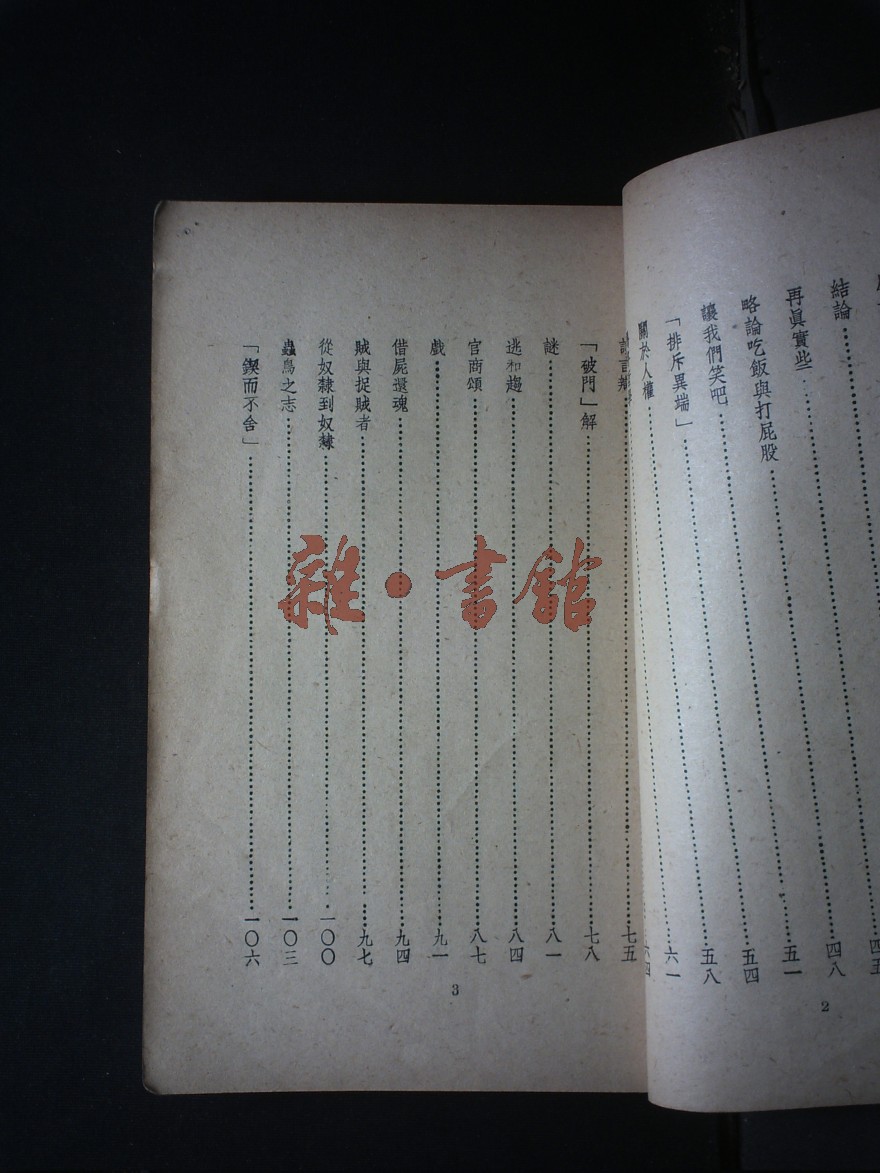 結論……四八
再眞實些……五一
略論吃飯與打屁股……五四
讓我們笑吧……五八
「排斥異端」……六一
關於人權……六四
2
七五
「破門」解……七八
謎……八一
逃和趨……八四
官商頌……八七
戲……九一
借屍還魂……九四
賊與捉賊者……九七
從奴隸到奴隸……一〇〇
蟲鳥之志……一〇三
「鍥而不舍」……一〇六
3
雜·書館